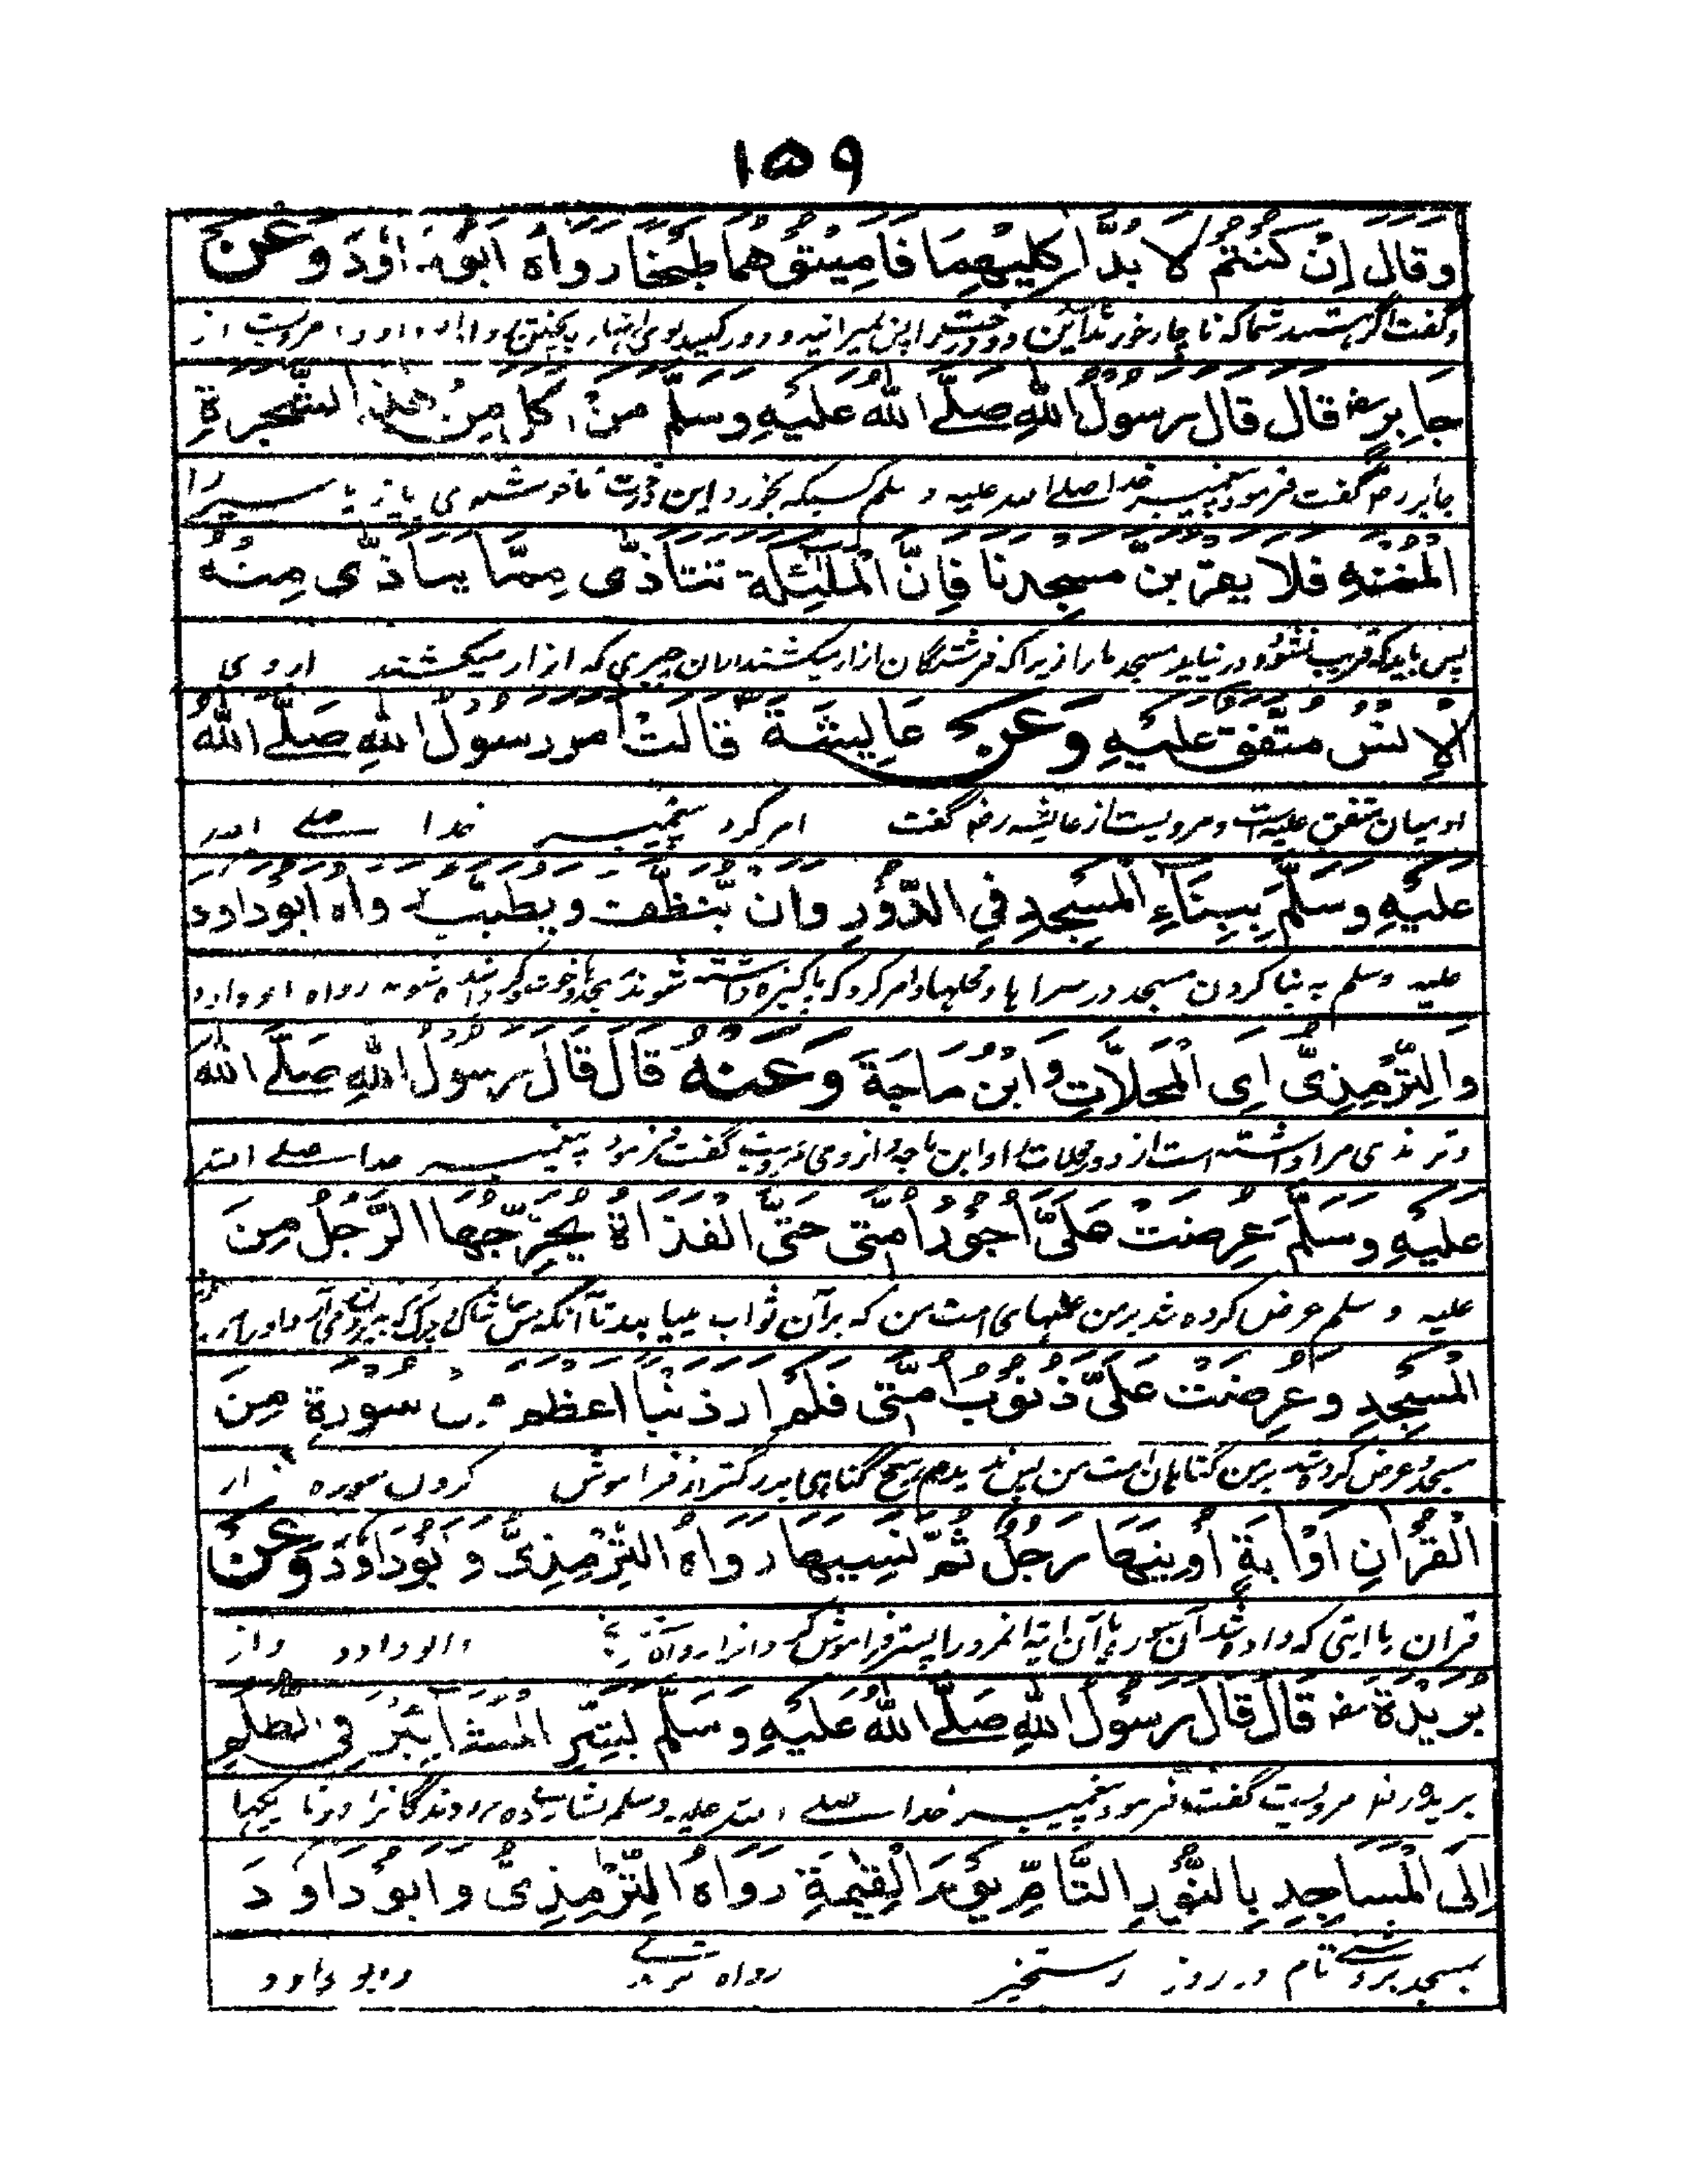 ۱۵۹
وَقَالَ اِنْ كُنْتُمْ لَا بُدَّ اٰكِلِيْهِمَا فَاَمِيْتُوْهُمَا طَبْخًا رَوَاهُ اَبُوْدَاوُدَ وَعَنْ
وگفت اگر هستید شما که ناچار خورنداین دو درخت را پس بمیرانید و دور کنید بوی اینها را به پختن رواه ابو داود مرویست از
جَابِرٍ رض قَالَ قَالَ رَسُوْلُ اللهِ صَلَّى اللهُ عَلَيْهِ وَسَلَّمَ مَنْ اَكَلَ مِنْ هٰذِهِ الشَّجَرَةِ
جابر رض گفت فرمود پیغمبر خدا صلے الله علیه و سلم کسیکه بخورد این درخت ناخوش بوی پیاز یا سیر را
الْمُنْتِنَةِ فَلَا يَقْرَبَنَّ مَسْجِدَنَا فَاِنَّ الْمَلٰئِكَةَ تَتَاَذّٰى مِمَّا يَتَاَذّٰى مِنْهُ
پس باید که قریب نشود و در نیاید مسجد ما را زیرا که فرشتگان ازار میکشند ازان چیزی که ازار میکشند از وی
الْاِنْسُ مُتَّفَقٌ عَلَيْهِ وَعَنْ عَايِشَةَ قَالَتْ اَمَرَ رَسُوْلُ اللهِ صَلَّى اللهُ
ادمیان متفق علیه است و مرویست از عائشه رض گفت امر کرد پیغمبر خدا صلے الله
عَلَيْهِ وَسَلَّمَ بِبِنَاءِ الْمَسْجِدِ فِي الدُّوْرِ وَاَنْ يُّنَظَّفَ وَيُطَيَّبَ رَوَاهُ اَبُوْدَاوُدَ
علیه وسلم به بنا کردن مسجد در سرا ها و محلها و امر کرد که پاکیزه داشته شوند و خوشبو شوند رواه ابو داود
وَالتِّرْمِذِىُّ اَىِ الْمَحَلَّاتِ وَابْنُ مَاجَةَ وَعَنْهُ قَالَ قَالَ رَسُوْلُ اللهِ صَلَّى اللهُ
وترمذی مراد داشته است از دور محلات را وابن ماجه و از وی مرویست گفت فرمود پیغمبر خدا صلے الله
عَلَيْهِ وَسَلَّمَ عُرِضَتْ عَلَىَّ اُجُوْرُ اُمَّتِى حَتَّى الْقَذَاةُ يُخْرِجُهَا الرَّجُلُ مِنَ
علیه و سلم عرض کرده شد بر من عملهای امت من که بر آن ثواب مییابند تا آنکه
الْمَسْجِدِ وَعُرِضَتْ عَلَىَّ ذُنُوْبُ اُمَّتِى فَلَمْ اَرَ ذَنْبًا اَعْظَمَ مِنْ سُوْرَةٍ مِنَ
مسجد و عرض کرده شد بر من گناهان امت من پس ندیدم هیچ گناهی بزرگتر از فراموش کردن سوره از
الْقُرْاٰنِ اَوْاٰيَةٍ اُوْتِيَهَا رَجُلٌ ثُمَّ نَسِيَهَا رَوَاهُ التِّرْمِذِىُّ وَ بُوْدَاوُدَ وَعَنْ
قران یا ایتی که داده شد آن سوره یا آن ایة انمرد را پستر فراموش کرد وانرا رواه ابوداود واز
بُرَيْدَةَ رض قَالَ قَالَ رَسُوْلُ اللهِ صَلَّى اللهُ عَلَيْهِ وَسَلَّمَ بَشِّرِ الْمَشَّائِيْنَ فِى الظُّلَمِ
بریده رض مرویست گفت فرمود پیغمبر خدا صلے الله علیه وسلم بشارت ده روندگانرا در تاریکیها
اِلَى الْمَسَاجِدِ بِالنُّوْرِ التَّامِّ يَوْمَ الْقِيٰمَةِ رَوَاهُ التِّرْمِذِىُّ وَاَبُوْدَاوُدَ
بمسجد بروشنے تام در روز رستخیز رواه ترمذے وابو داود